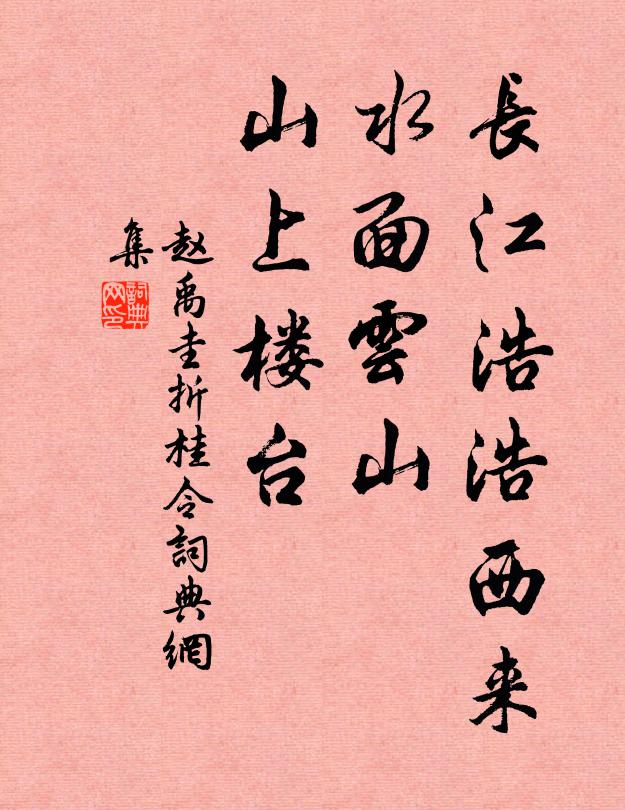 長江浩浩西来
水面雲山
山上楼台
赵禹圭折桂令詞典網
集
詞典
网印